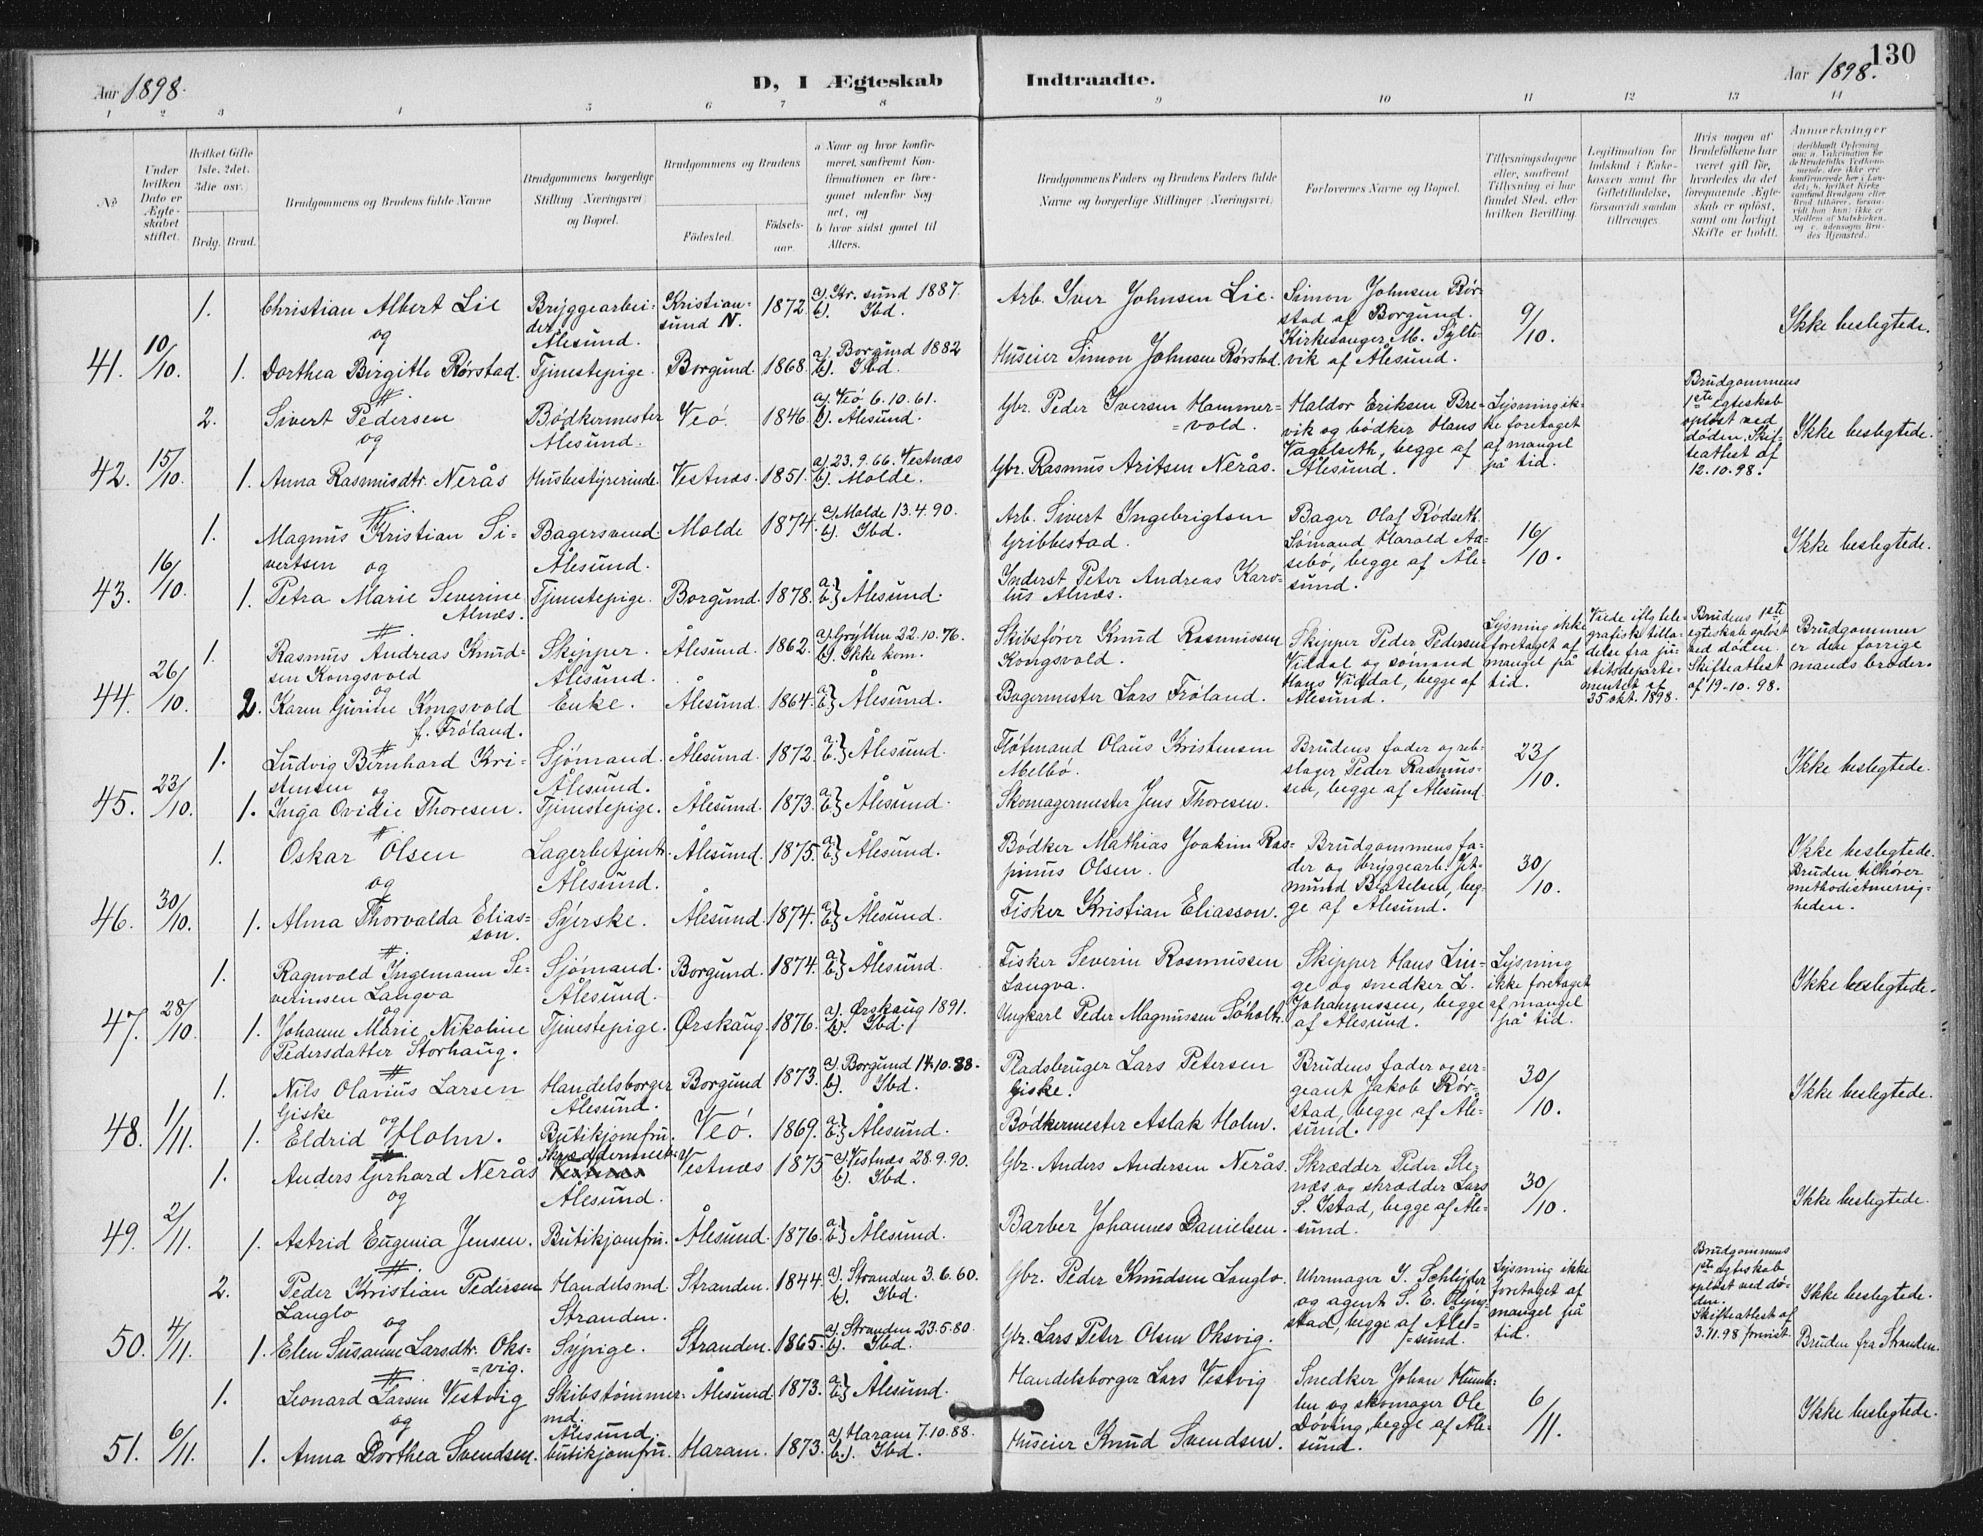 130
Aar 1898.
D, I Ægteskab Indtraadte.
Aar 1898.
1 2 3 4 5 6 7 8 9 10 11 12 13 14
№
Under hvilken Dato er Ægteskabet stiftet.
Hvilket Gifte 1ste, 2det, 3die osv.
Brdg. Brud.
Brudgommens og Brudens fulde Navne
Brudgommens borgerlige Stilling (Næringsvei) og Bopæl.
Brudgommens og Brudens
Fødested. Fødselsaar.
a Naar og hvor konfirmeret, samfremt Konfirmationen er foregaaet udenfor Sognet, og
b hvor sidst gaaet til Alters.
Brudgommens Faders og Brudens Faders fulde Navne og borgerlige Stillinger (Næringsvei)
Forlovernes Navne og Bopæl.
Tillysningsdagene eller, samfremt Tillysning ei har fundet Sted, efter hvilken Bevilling.
Legitimation for Indskud i Enkekassen samt for Giftetilladelse, forsaavidt saadan tiltrænges.
Hvis nogen af Brudefolkene har været gift før, hvorledes da det foregaaende Ægteskab er opløst, samt om lovligt Skifte er holdt.
Anmærkninger
41. 10/10. 1. Christian Albert Lie Bryggearbeider Ålesund. Kristiansund N. 1872. a). Kr. sund 1887. b). Ibd. Arb. Iver Johnsen Lie. Simon Johnsen Rørstad af Borgund. Kirkesanger M. Syltevik af Ålesund. 9/10. Ikke beslegtede.
og
1. Dorthea Birgitte Rørstad. Tjenestepige. Borgund. 1868. a). Borgund 1882 b). Ibd. Huseier Simon Johnsen Rørstad.
42. 15/10. 2. Sivert Pedersen Bødkermester Ålesund. Veø. 1846. a). Veø 6.10.61. b). Ålesund. Gbr. Peder Iversen Hammervold. Haldor Eriksen Brevik og bødker Hans Vagelseth, begge af Ålesund. Lysning ikke foretaget af mangel på tid. Brudgommens 1ste egteskab opløst ved døden. Skifteattest af 12.10.98. Ikke beslegtede.
og
1. Anna Rasmusdtr. Nerås Husbestyrerinde. Vestnæs. 1851. a). 23.9.66. Vestnæs b). Molde. Gbr. Rasmus Aritsen Nerås.
43. 16/10. 1. Magnus Kristian Sivertsen og Bagersvend Ålesund. Molde 1874. a) Molde 13.4.90. b). Ibd. Arb. Sivert Ingebrigtsen Gribbestad. Bager Olaf Rødseth. Sømand Harald Aasebø, begge af Ålesund. 16/10. Ikke beslegtede.
1. Petra Marie Severine Alnæs. Tjenestepige. Borgund. 1878. a. b.} Ålesund. Inderst Peter Andreas Karolius Alnæs.
44. 26/10. 1. Rasmus Andreas Knudsen Kongsvold Skipper. Ålesund. Ålesund. 1862. a). Grytten 22.10.76. b). Ikke kom. Skibsfører Knud Rasmussen Kongsvold. Skipper Peder Pedersen Vildal og sømand Hans Vildal, begge af Ålesund. Lysning ikke foretaget af mangel på tid. Viede iflg telegrafisk tilladelse fra justitsdepartementet af 25 okt. 1898. Brudens 1ste egteskab opløst ved døden. Skifteattest af 19-10.98. Brudgommen er dens forrige mands broder.
og
2. Karen Gurine Kongsvold f. Frøland. Enke. Ålesund. 1864. a. b.} Ålesund. Bagermester Lars Frøland.
45. 23/10. 1. Ludvig Bernhard Kristensen og Sjømand. Ålesund. Ålesund. 1872. a. b.} Ålesund. Fløtmand Olaus Kristensen Melbø. Brudens fader og rebslager Peder Rasmussen, begge af Ålesund. 23/10. Ikke beslegtede.
1. Inga Ovidie Thoresen. Tjenestepige. Ålesund. 1873. a. b.} Ålesund. Skomagermester Jens Thoresen.
46. 30/10. 1. Oskar Olsen Lagerbetjent. Ålesund. Ålesund. 1875. a. b.} Ålesund. Bødker Mathias Joakim Raspinus Olsen. Brudgommens fader og bryggearb. Jetmund Bertelsen, begge af Ålesund. 30/10. Ikke beslegtede. Bruden tilhører methodistmenigheden.
og
1. Alma Thorvalda Eliasson. Syerske. Ålesund 1874. a. b.} Ålesund. Fisker Kristian Eliasson.
47. 28/10. 1. Ragnvald Ingemann Severinsen Langva Sjømand. Ålesund. Borgund. 1874. a. b.} Ålesund. Fisker Severin Rasmussen Langva. Skipper Hans Linge og snedker L. Johannessen, begge af Ålesund. Lysning ikke foretaget af mangel på tid. Ikke beslegtede.
og
1. Johanne Marie Nikoline Pedersdatter Storhaug. Tjenestepige. Ørskaug. 1876. a). Ørskaug 1891. b). Ibd. Ungkarl Peder Magnussen Søholt.
48. 1/11. 1. Nils Olavius Larsen Giske Handelsborger Ålesund. Borgund 1873. a). Borgund 14.10.88. b). Ibd. Pladsbruger Lars Petersen Giske. Brudens fader og sergeant Jakob Rørstad, begge af Ålesund. 30/10. Ikke beslegtede.
og
1. Eldrid Holm. Butikjomfru. Veø. 1869. a. b.} Ålesund. Bødkermester Aslak Holm.
49. 2/11. 1. Anders Gerhard Nerås Skræddermester Ålesund. Vestnæs 1875 a). Vestnæs 28.9.90. b). Ibd. Gbr. Anders Andersen Nerås. Skrædder Peder Stenæs og skrædder Lars S. Istad, begge af Ålesund. 30/10. Ikke beslegtede.
og
1. Astrid Eugenia Jensen. Butikjomfru. Ålesund. 1876. a. b.} Ålesund. Barber Johannes Danielsen.
50. 4/11. 2. Peder Kristian Pedersen Langlo Handelsmd. Stranden. Stranden. 1844. a). Stranden 3.6.60. b). Ibd. Gbr. Peder Knudsen Langlo. Uhrmager J. Schleyder og agent S. E. Slyngstad, begge af Ålesund. Lysning ikke foretaget af mangel på tid. Brudgommens 1ste egteskab opløst ved døden. Skifteattest af 3.11.98 forevist. Ikke beslegtede. Bruden fra Stranden.
og
1. Elen Susanne Larsdtr. Oksvig. Sypige. Stranden. 1865. a). Stranden 23.5.80. b). Ibd. Gbr. Lars Peter Olsen Oksvig.
51. 6/11. 1. Leonard Larsen Vestvig Skibstømmermd. Ålesund. Ålesund. 1873. a. b.} Ålesund. Handelsborger Lars Vestvig Snedker Johan Humlen og skomager Ole Døving, begge af Ålesund. 6/11. Ikke beslegtede.
og
1. Anna Dorthea Svendsen. butikjomfru. Haram. 1873. a) Haram 7.10.88. b). Ibd. Huseier Knud Svendsen.